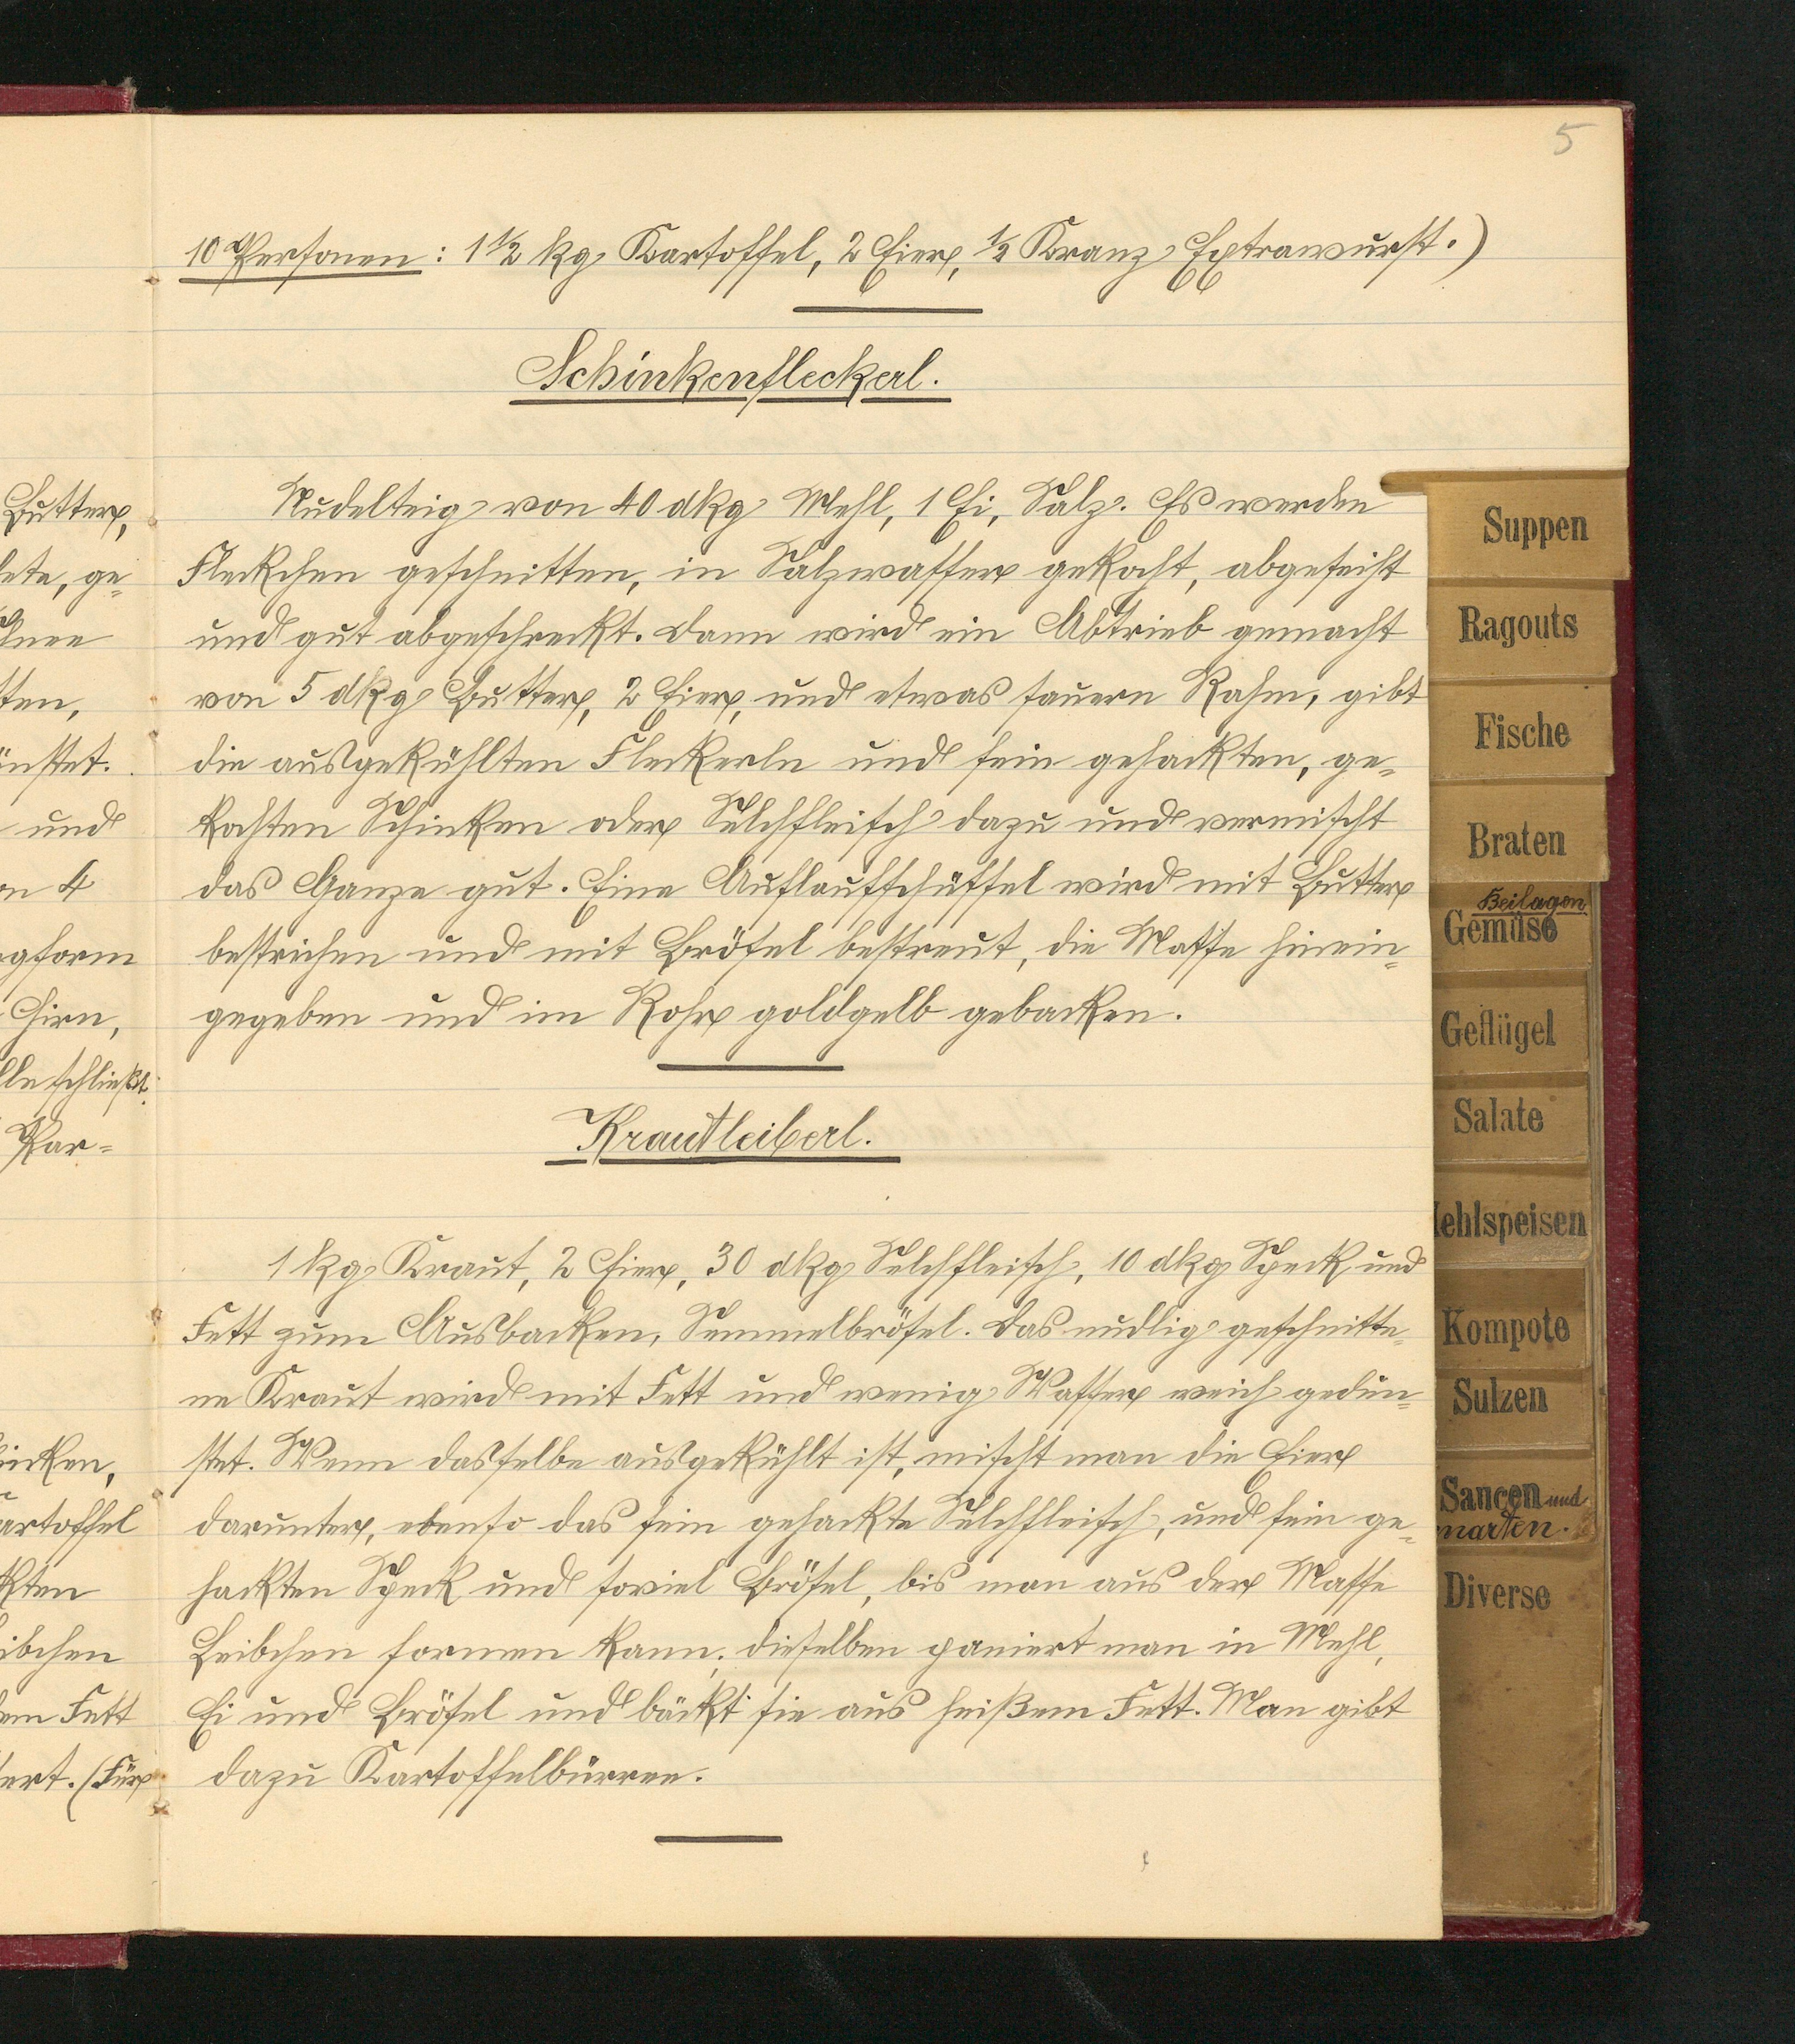 5
10 Personen: 1 1/2 kg Kartoffel, 2 Eier, 1/2 Kranz Extrawurst.)
Schinkenfleckerl.
Nudelteig von 40 dkg Mehl, 1 Ei, Salz. Es werden
Fleckchen geschnitten, in Salzwasser gekocht, abgeseiht
und gut abgeschreckt. Dann wird ein Abtrieb gemacht
von 5 dkg Butter, 2 Eier, und etwas sauern Rahm, gibt
die ausgekühlten Fleckerln und fein gehackten, ge-
kochten Schinken oder Selchfleisch dazu und vermischt
das Ganze gut. Eine Auflaufschüssel wird mit Butter
bestrichen und mit Brösel bestreut, die Masse hinein-
gegeben und im Rohr goldgelb gebacken.
Krautleiberl.
1 kg Kraut, 2 Eier, 30 dkg Selchfleisch, 10 dkg Speck und
Fett zum Ausbacken, Semmelbrösel. Das nudlig geschnitte-
ne Kraut wird mit Fett und wenig Wasser weich gedün-
stet. Wenn dasselbe ausgekühlt ist, mischt man die Eier
darunter, ebenso das fein gehackte Selchfleisch, und fein ge-
hackten Speck und soviel Brösel, bis man aus der Masse
Leibchen formen kann; dieselben paniert man in Mehl,
Ei und Brösel und bäckt sie aus heißem Fett. Man gibt
dazu Kartoffelbürree.
Butter,
ge-
und
4
Eiern,
schließt.
Par-
Fett
(Für
Suppen
Ragouts
Fische
Braten
Beilagen
Gemüse
Geflügel
Salate
ehlspeisen
Kompote
Sulzen
Saucen und
narten.
Diverse